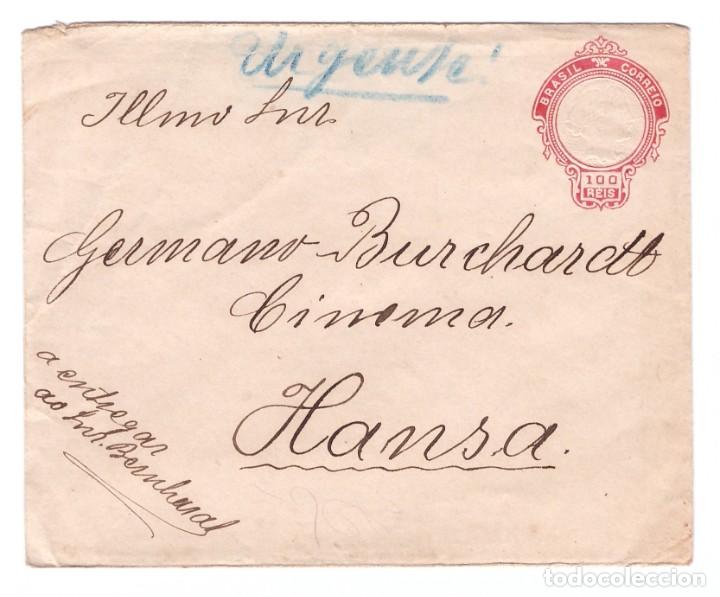 Urgente!
BRASIL CORREIO
100
REIS
Illmo Snr.
Germano Burchardt
Cinema.
Hansa.
a entregar
ao Snr. Bernhard
todocoleccion
todocoleccion.net